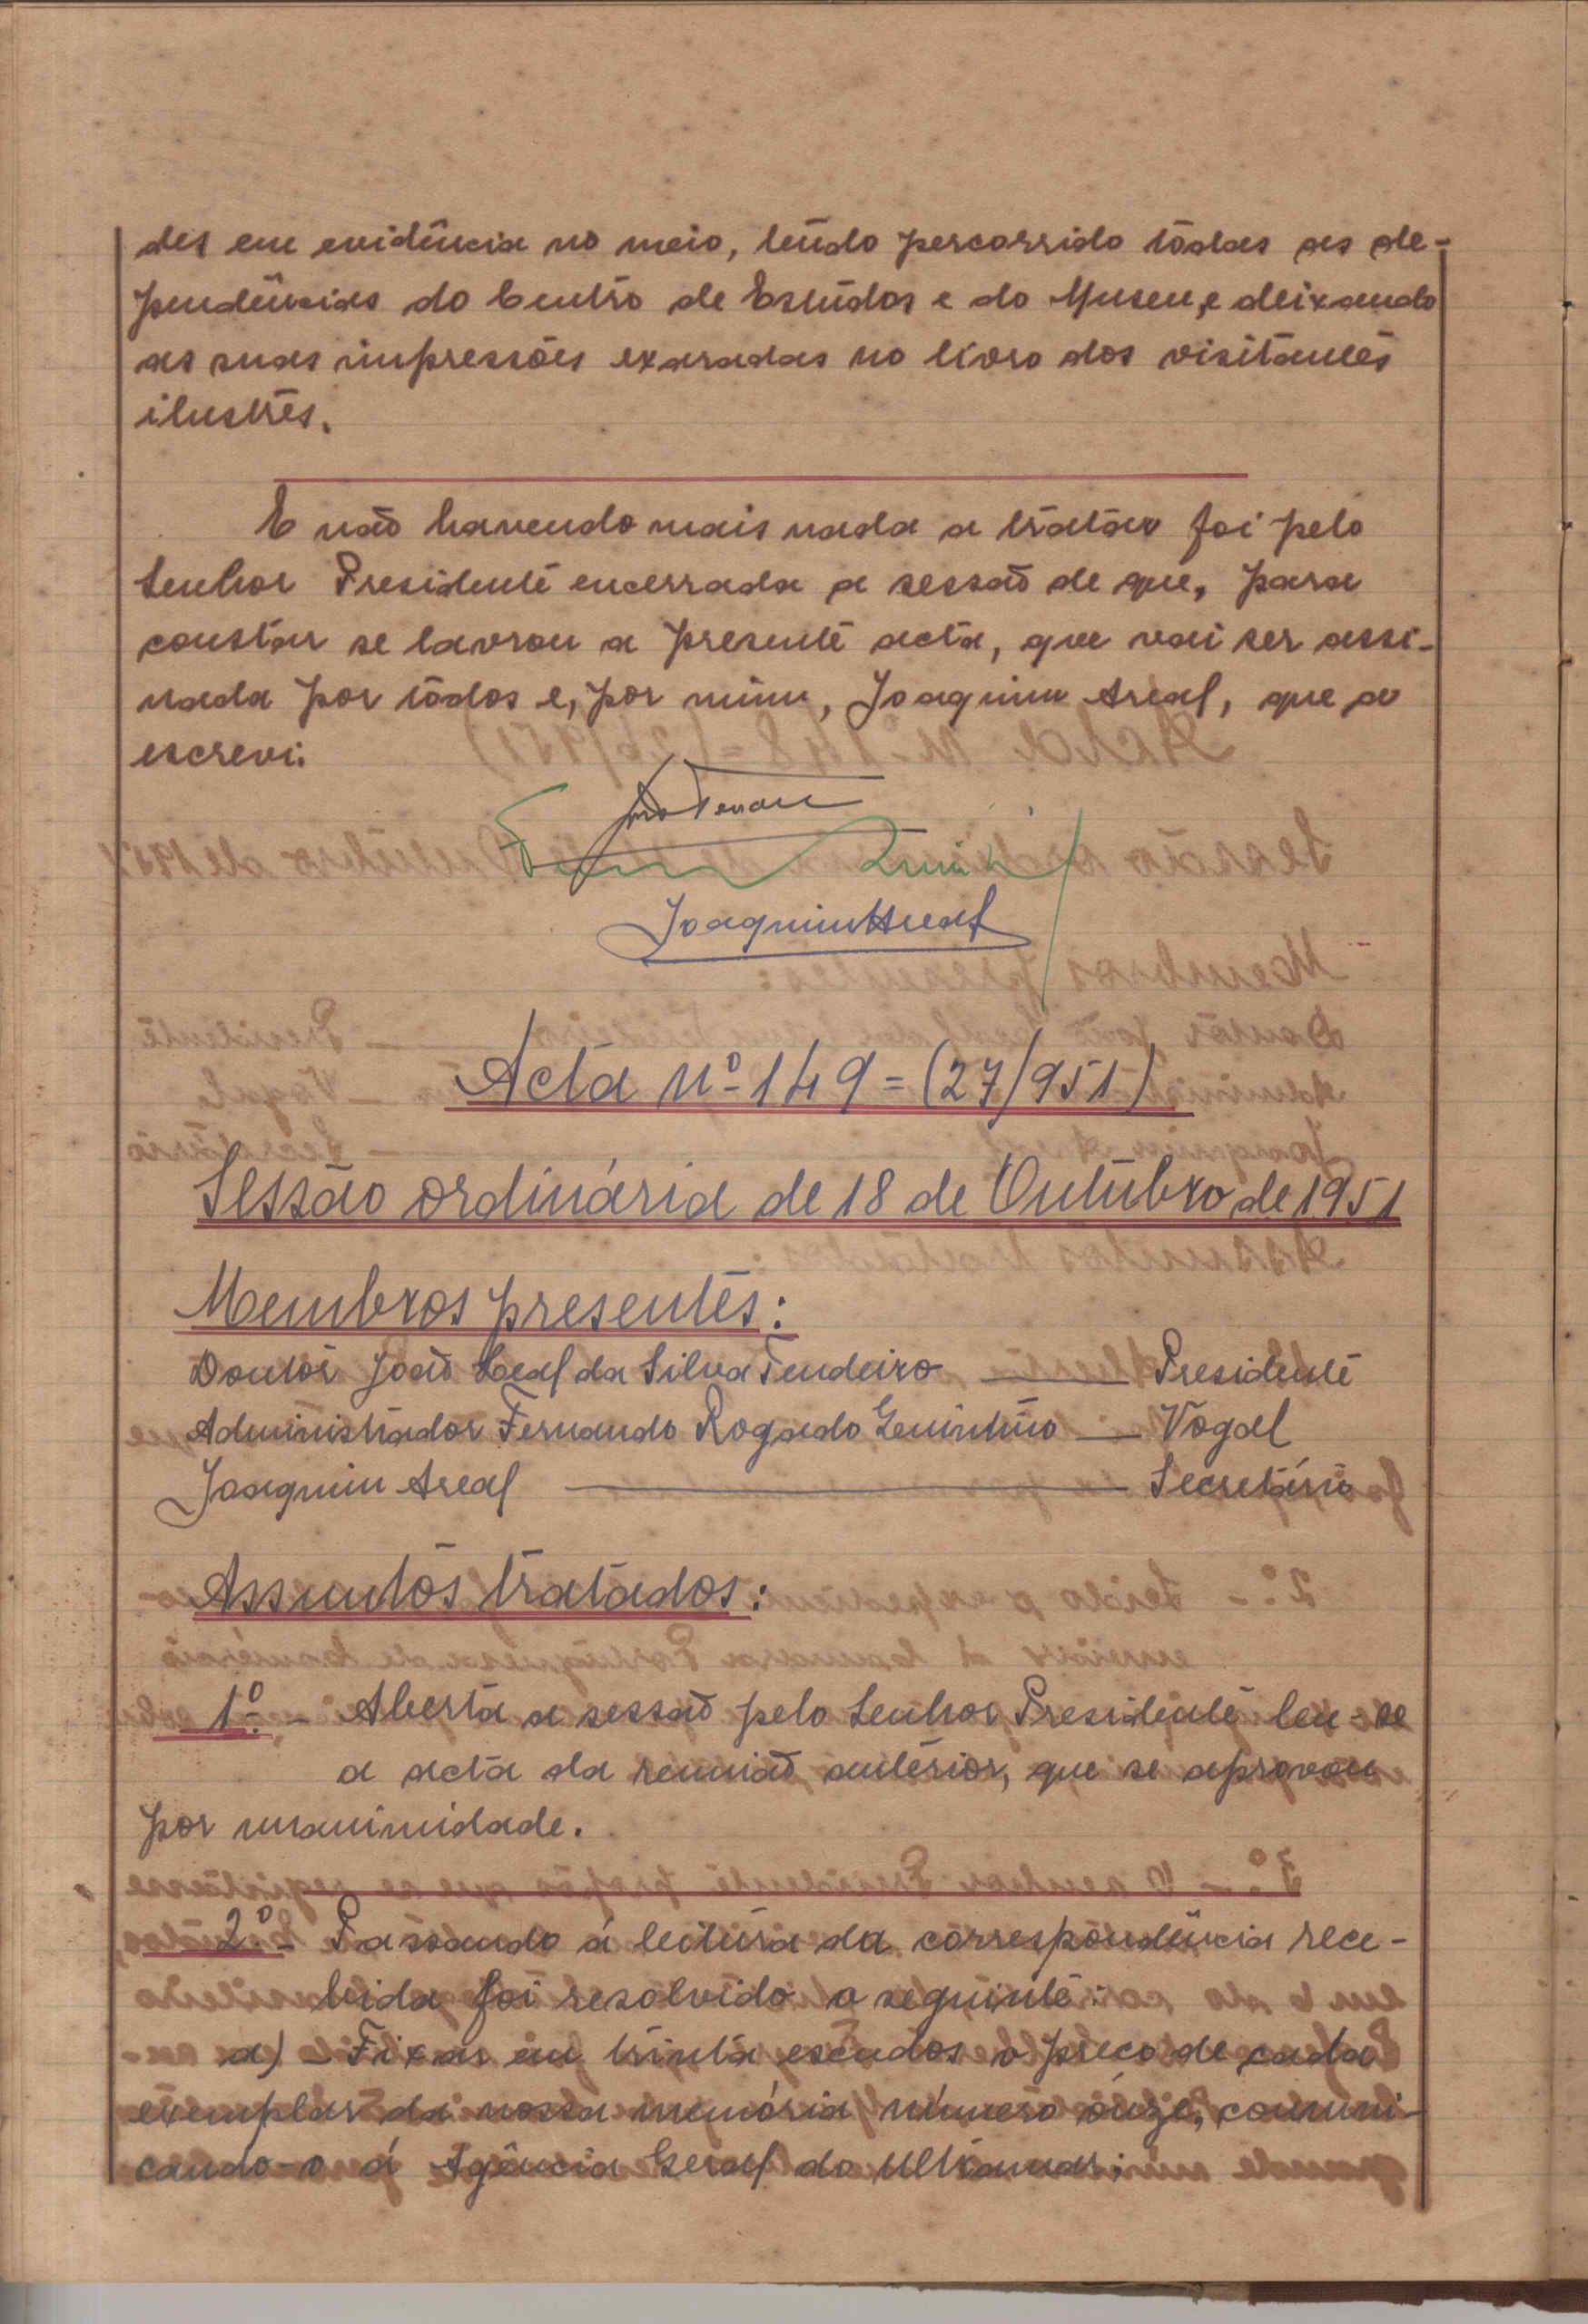 des em evidência no meio, tendo percorrido tôdas as de-
pendências do Centro de Estudos e do Museu, e deixando
as suas impressões exaradas no livro dos visitantes
ilustres.
E não havendo mais nada a tratar foi pelo
Senhor Presidente encerrada a sessão de que, para
constar se lavrou a presente acta, que vai ser assi-
nada por tôdos e, por mim, Joaquim Areal, que a
escrevi.
Joaquim Areal
Acta nº 149 = (27/951)
Sessão ordinária de 18 de Outubro de 1951
Membros presentes:
Doutor João Leal da Silva Tendeiro — Presidente
Administrador Fernando Rogado Quintino — Vogal
Joaquim Areal — Secretário
Assuntos tratados:
1º. - Aberta a sessão pelo Senhor Presidente leu-se
a acta da reunião anterior, que se aprovou
por unanimidade.
2º. - Passando á leitura da correspondência rece-
bida foi resolvido o seguinte:
a) - Fixar em trinta escudos o preço de cada
exemplar da nossa memória número ónze, comuni-
cando-o á Agência Geral do Ultramar;